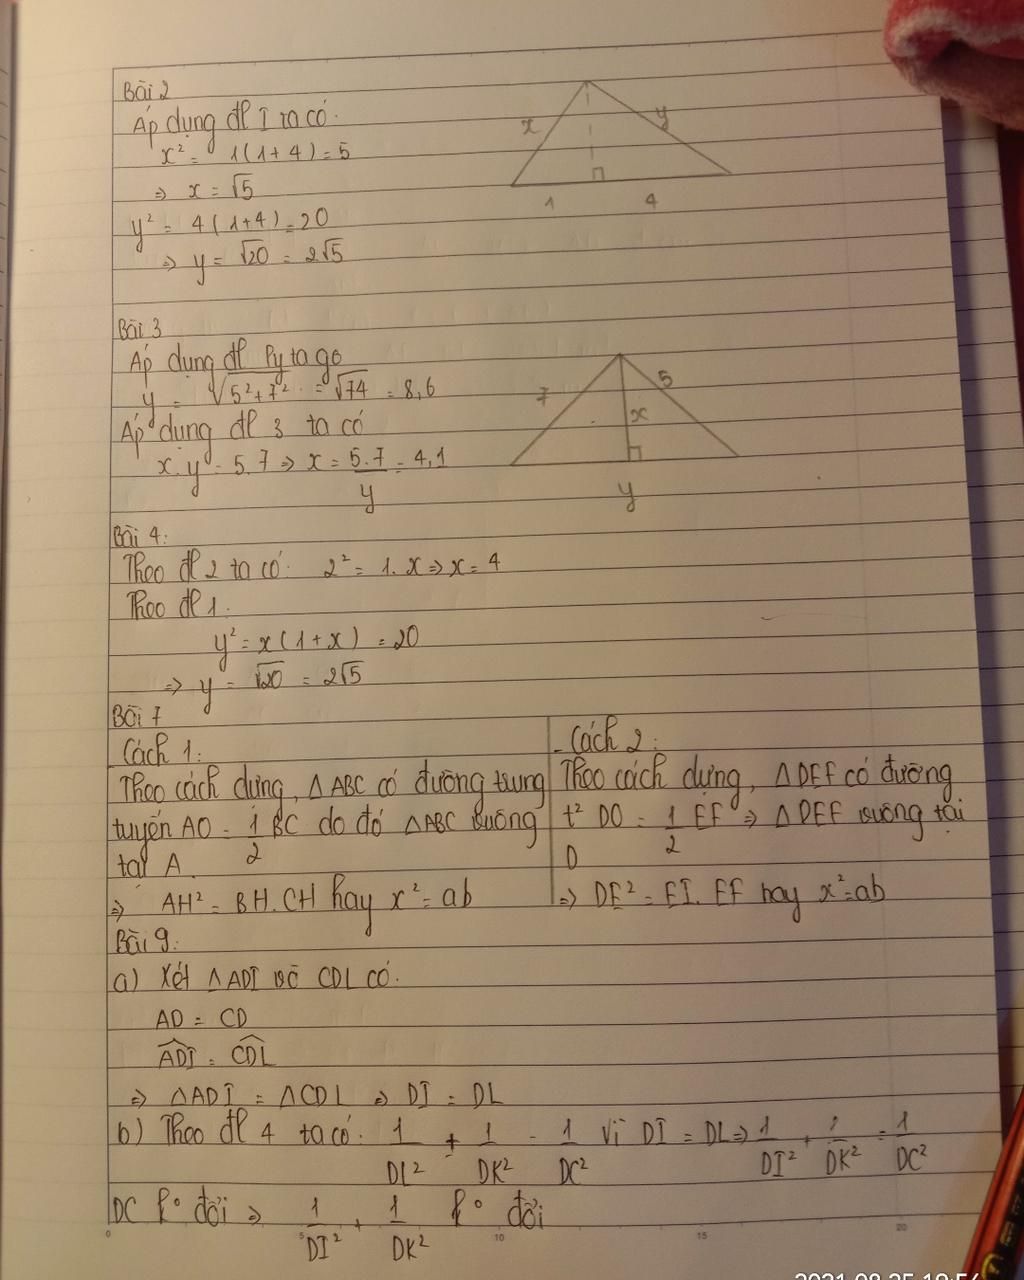 Bài 2
Áp dụng đl I ta có.
x² = 1(1+4) = 5
⇒ x = √5
y² = 4(1+4) = 20
⇒ y = √20 = 2√5
x
y
1
4
Bài 3
Áp dụng đl Pytago
y = √5²+7² = √74 = 8,6
Áp dụng đl 3 ta có
x.y = 5.7 ⇒ x = 5.7/y = 4,1
7
5
x
y
Bài 4:
Theo đl 2 ta có: 2² = 1.x ⇒ x = 4
Theo đl 1.
y² = x(1+x) = 20
⇒ y = √20 = 2√5
Bài 7
Cách 1:
Theo cách dựng, △ABC có đường trung
tuyến AO = 1/2 BC do đó △ABC vuông
tại A.
⇒ AH² = BH.CH hay x² = ab
- Cách 2:
Theo cách dựng, △DEF có đường
t² DO = 1/2 EF ⇒ △DEF vuông tại
D
⇒ DE² = EI.EF hay x² = ab
Bài 9:
a) Xét △ADI và CDL có.
AD = CD
ADI = CDL
⇒ △ADI = △CDL ⇒ DI = DL
b) Theo đl 4 ta có: 1/DL² + 1/DK² = 1/DC² vì DI = DL ⇒ 1/DI² + 1/DK² = 1/DC²
DC k° đổi ⇒ 1/DI² + 1/DK² k° đổi
0 5 10 15 20